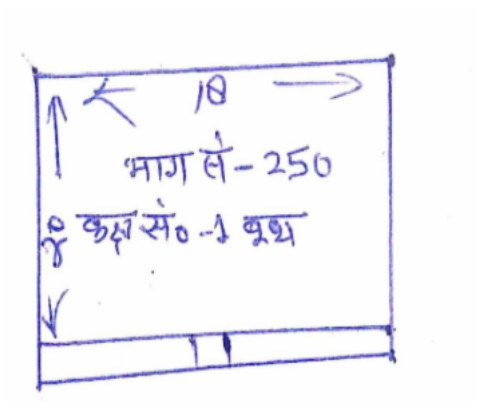 18
भाग सं-250
कक्ष सं० -1 बूथ